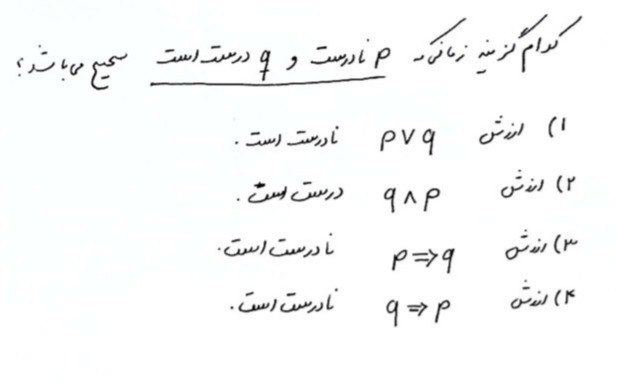 کدام گزینه زمانی که p نادرست و q درست است صحیح می باشد؟
۱) ارزش p ∨ q نادرست است.
۲) ارزش q ∧ p درست است.
۳) ارزش p ⇒ q نادرست است.
۴) ارزش q ⇒ p نادرست است.